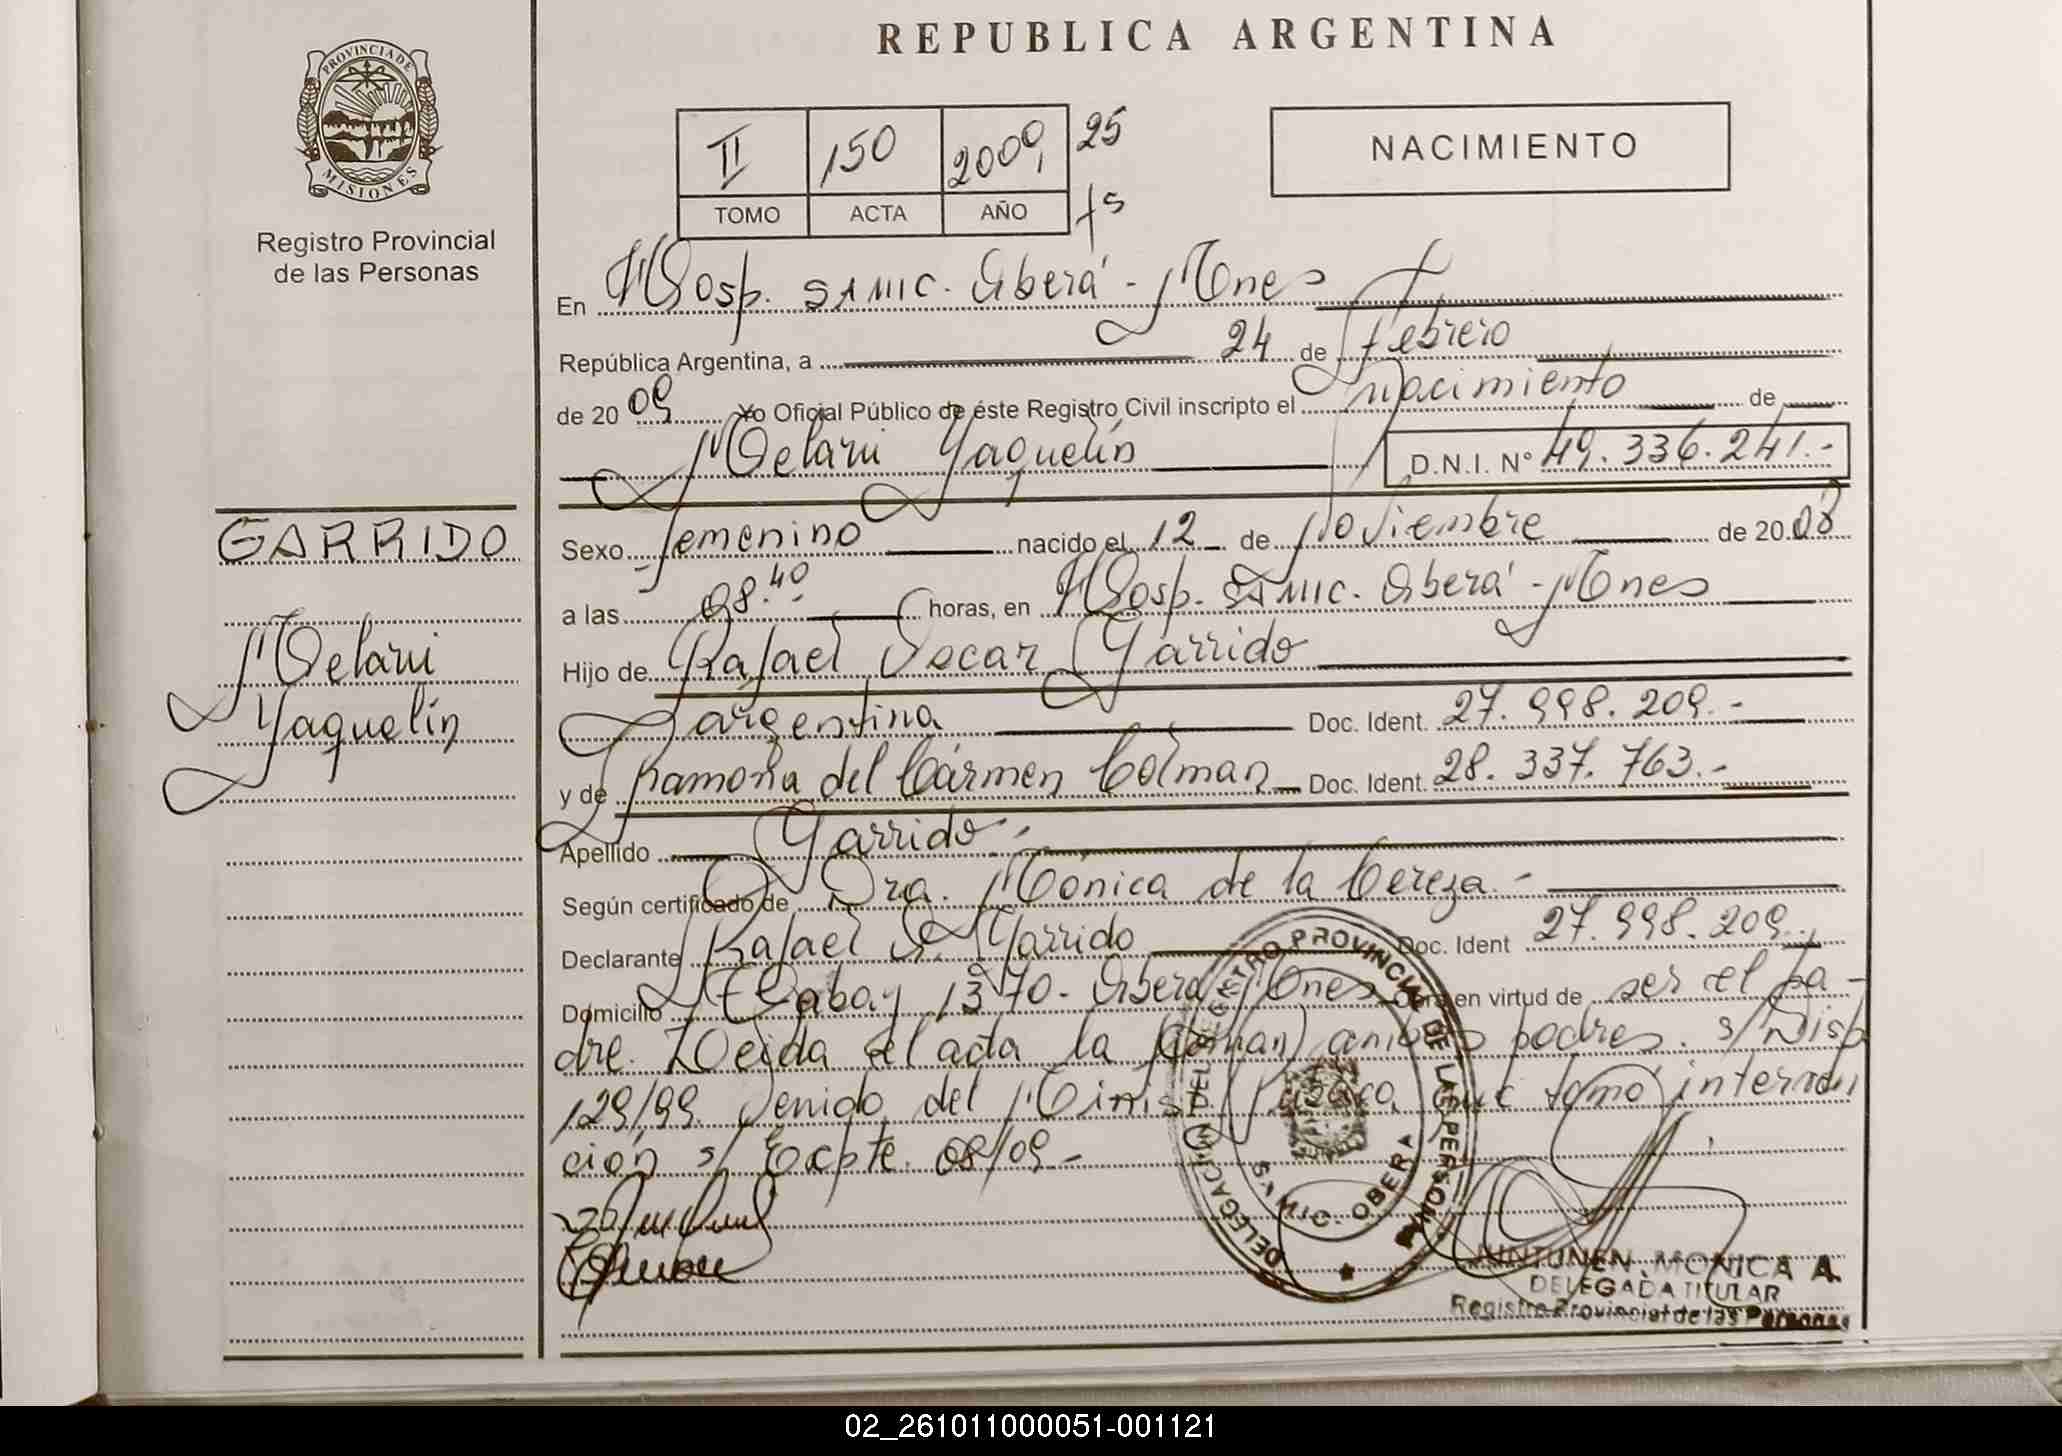 REPUBLICA ARGENTINA
PROVINCIA DE
MISIONES
Registro Provincial
de las Personas
II 150 2009 25
TOMO ACTA AÑO fs
NACIMIENTO
En Hosp. SAMIC. Oberá - Mnes
República Argentina, a 24 de febrero
de 2009 Yo Oficial Público de éste Registro Civil inscripto el nacimiento de
Melani Yaquelín D.N.I. N° 49.336.241.-
GARRIDO
Melani
Yaquelín
Sexo femenino nacido el 12 de Noviembre de 2008
a las 08.40 horas, en Hosp. SAMIC. Oberá - Mnes
Hijo de Rafael Oscar Garrido
argentina Doc. Ident. 27.998.209.-
y de Ramona del Cármen Colman Doc. Ident. 28.337.763.-
Apellido Garrido.-
Según certificado de Dra. Mónica de la Cereza.-
Declarante Rafael O. Garrido Doc. Ident 27.998.209.-
Domicilio 1370 - Oberá Mnes Obra en virtud de ser el pa-
dre. Leída el acta la firman ambos padres. s/Disp
129/99. del que tomó interven
ción s/ Expte. 08/09.-
DELEGACION DEL REGISTRO PROVINCIAL DE LAS PERSONAS
SAMIC. OBERA
MONICA A.
DELEGADA TITULAR
Registro Provincial de las Personas
02_261011000051-001121